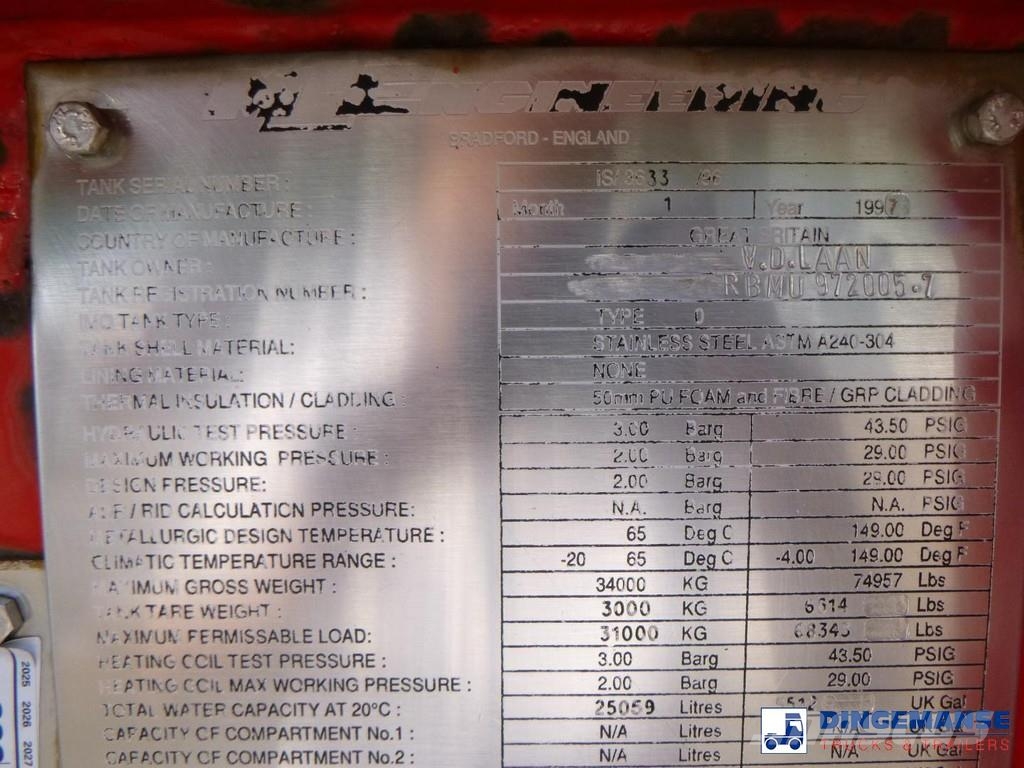 ENGINEERING
BRADFORD - ENGLAND
TANK SERIAL NUMBER: 33 /96
DATE OF MANUFACTURE: Month 1 Year 1997
COUNTRY OF MANUFACTURE: GREAT BRITAIN
TANK OWNER: V.D.LAAN
TANK REGISTRATION NUMBER: RBMU 972005-7
IMO TANK TYPE: TYPE 0
TANK SHELL MATERIAL: STAINLESS STEEL ASTM A240-304
LINING MATERIAL: NONE
THERMAL INSULATION / CLADDING: 50mm PU FOAM and FIBRE / GRP CLADDING
HYDRAULIC TEST PRESSURE: 3.00 Barg 43.50 PSIG
MAXIMUM WORKING PRESSURE: 2.00 Barg 29.00 PSIG
DESIGN PRESSURE: 2.00 Barg 29.00 PSIG
ADR / RID CALCULATION PRESSURE: N.A. Barg N.A. PSIG
METALLURGIC DESIGN TEMPERATURE: 65 Deg C 149.00 Deg F
CLIMATIC TEMPERATURE RANGE: -20 65 Deg C -4.00 149.00 Deg F
MAXIMUM GROSS WEIGHT: 34000 KG 74957 Lbs
TANK TARE WEIGHT: 3000 KG 6614 Lbs
MAXIMUM PERMISSABLE LOAD: 31000 KG 68343 Lbs
HEATING COIL TEST PRESSURE: 3.00 Barg 43.50 PSIG
HEATING COIL MAX WORKING PRESSURE: 2.00 Barg 29.00 PSIG
TOTAL WATER CAPACITY AT 20°C: 25059 Litres UK Gal
CAPACITY OF COMPARTMENT No.1: N/A Litres N/A UK Gal
CAPACITY OF COMPARTMENT No.2: N/A Litres N/A UK Gal
2025 2026 2027
DINGEMANSE
TRUCKS & TRAILERS